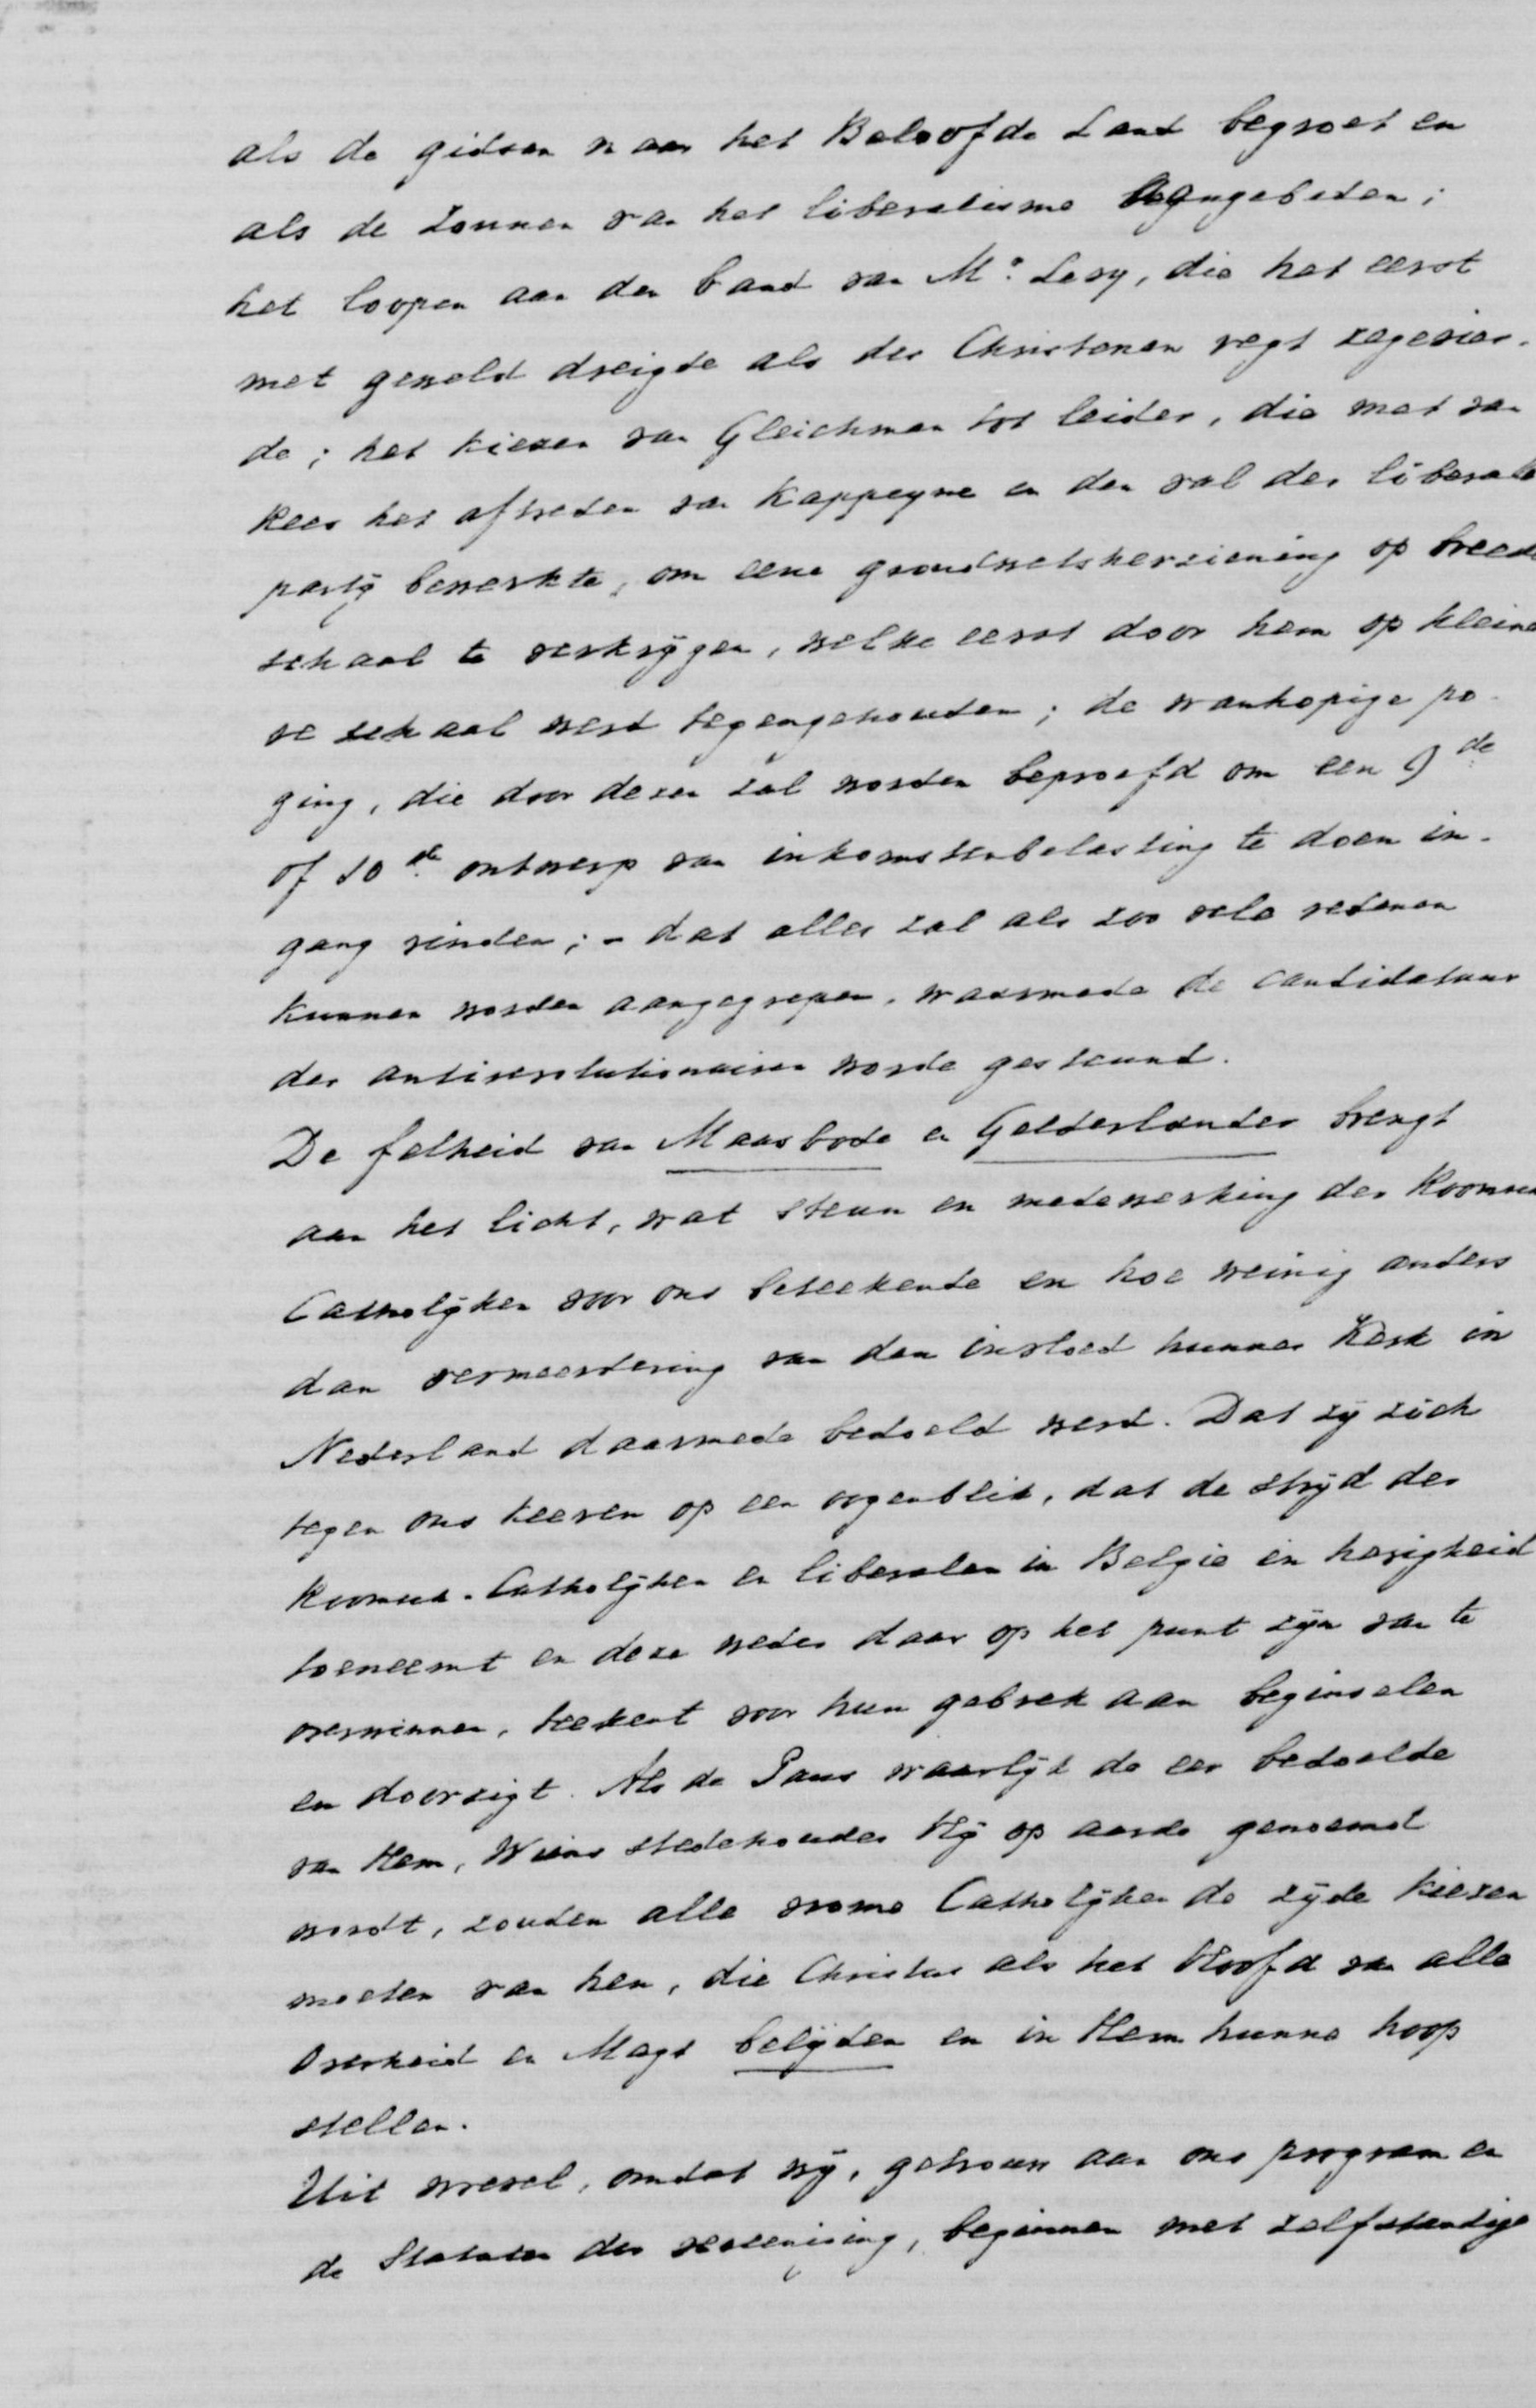 als de gidsen naar het Beloofde Land begroet en
als de zonnen van het liberalisme aangebeden;
het loopen aan den band van Mr. Levy, die het eerst
met geweld dreigde als der Christenen regt zegevier-
de; het kiezen van Gleichman tot leider, die met van
Rees het aftreden van Kappeyne en den val der liberale
partij bewerkte, om eene grondwetsherziening op breede
schaal te verkrijgen, welke eerst door hem op kleine
re schaal werd tegengehouden; de wanhopige po-
ging, die door dezen zal worden beproefd om een 9de
of 10de ontwerp van inkomstenbelasting te doen in-
gang vinden; - dat alles zal als zoo vele redenen
kunnen worden aangegrepen, waarmede de candidatuur
der antirevolutionairen worde gesteund.
De felheid van Maasbode en Gelderlander brengt
aan het licht, wat steun en medewerking der Roomsch
Catholijken voor ons beteekende en hoe weinig anders
dan vermeerdering van den invloed hunner Kerk in
Nederland daarmede bedoeld werd. Dat zij zich
tegen ons keeren op een oogenblik, dat de strijd der
Roomsch-Catholijken en liberalen in Belgie in hevigheid
toeneemt en deze weder daar op het punt zijn van te
overwinnen, teekent voor hun gebrek aan beginselen
en doorzigt. Als de Paus waarlijk de eer bedoelde
van Hem, Wiens stedehouder Hij op aarde genoemd
wordt, zouden alle vrome Catholijken de zijde kiezen
moeten van hen, die Christus als het Hoofd van alle
Overheid en Magt belijden en in Hem hunne hoop
stellen.
Uit vreesel, omdat wij, getrouw aan ons program en
de Statuten der vereeniging, beginnen met zelfstandige